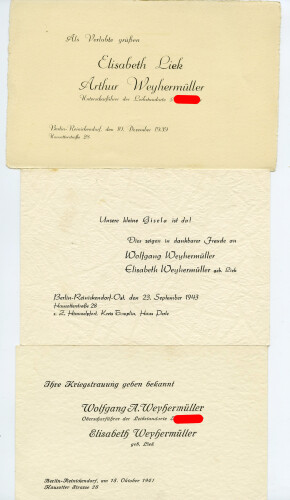 Als Verlobte grüßen
Elisabeth Liek
Arthur Weyhermüller
Unterscharführer der Leibstandarte
Berlin-Reinickendorf, den 30. Dezember 1939
Hausotterstraße 28
Unsere kleine Gisela ist da!
Dies zeigen in dankbarer Freude an
Wolfgang Weyhermüller
Elisabeth Weyhermüller geb. Liek
Berlin-Reinickendorf-Ost, den 23. September 1943
Hausotterstraße 28
z. Z. Kreis Templin, Haus
Ihre Kriegstrauung geben bekannt
Wolfgang A. Weyhermüller
Oberscharführer der Leibstandarte
Elisabeth Weyhermüller
geb. Liek
Berlin-Reinickendorf, am 18. Oktober 1941
Hausotter Strasse 28